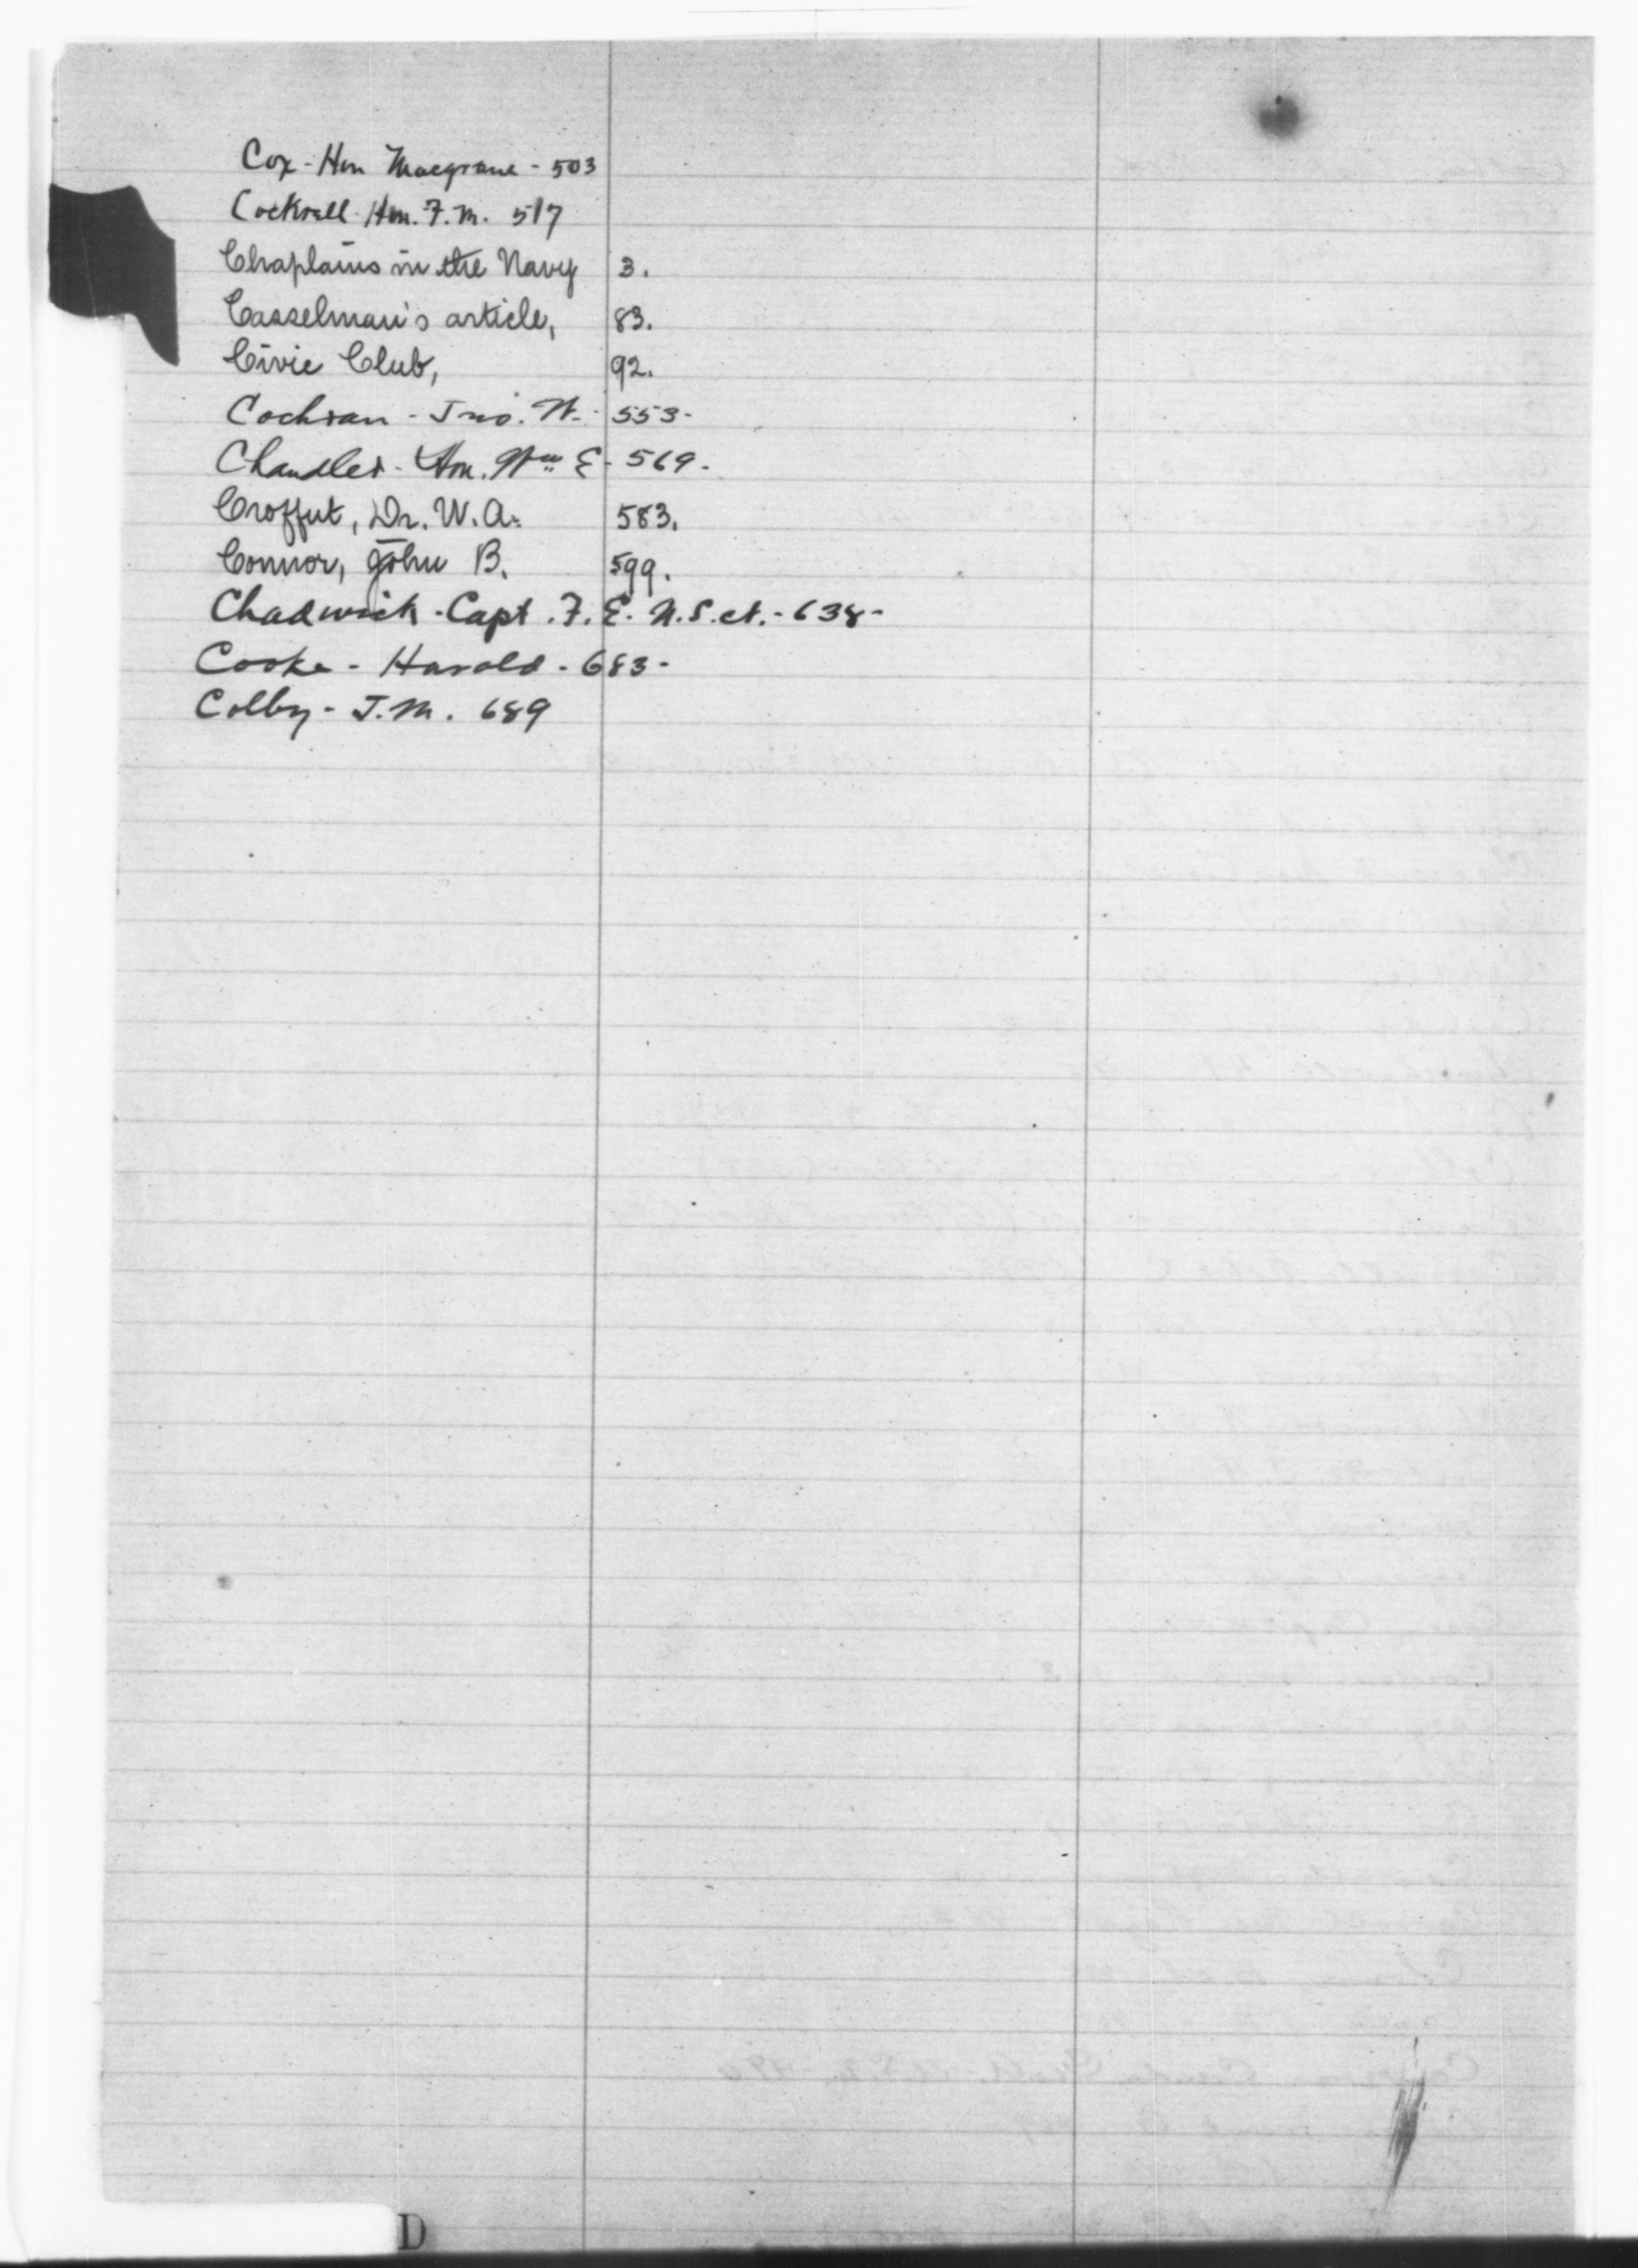 Cox - Hon Macgrane - 503
Cockrell - Hon. F. M. 517
Chaplains in the Navy 3.
Casselman's article, 83.
Civic Club, 92.
Cochran - Jno. W. - 553 -
Chandler - Hon. Wm E - 569 -
Croffut, Dr. W. A. 583.
Connor, John B. 599.
Chadwick - Capt. F. E. - 638 -
Cooke - Harold - 683 -
Colby - J. M. 689
D